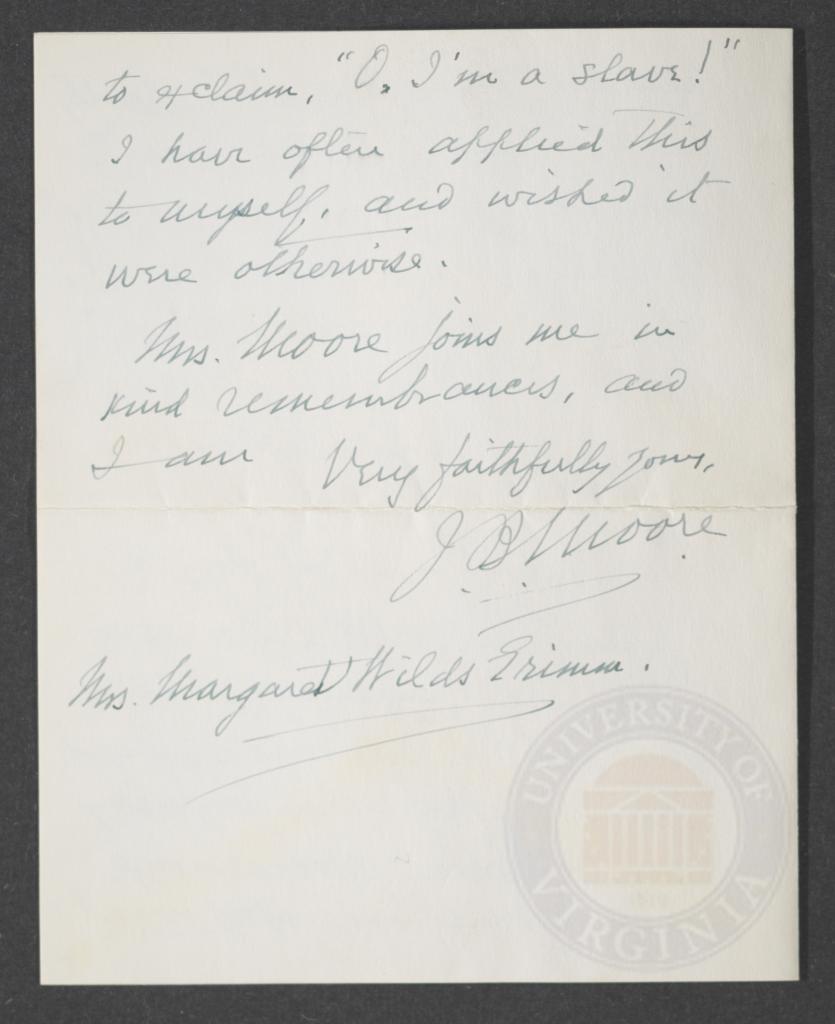 to exclaim, "O, I'm a slave!"
I have often applied this
to myself, and wished it
were otherwise.
Mrs. Moore joins me in
kind remembrances, and
I am Very faithfully yours,
J B Moore
Mrs. Margaret Wilds Grimm.
UNIVERSITY OF
VIRGINIA
1819